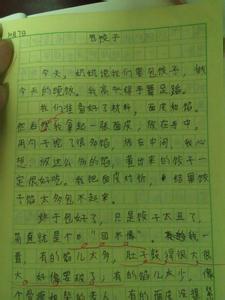 包饺子
今天，奶奶说我们要包饺子，做
今天的晚饭。我高兴得手舞足蹈。
我们准备好了材料，面皮和馅。
然后我拿起一张面皮，放在手中，
用勺子挖了很多馅，放在中间，我心
想：放这么多的馅，煮出来的饺子一
定很好吃。我把面皮对折，结果饺
子馅太多包不起来。
终于包好了，只是饺子太丑了，
简直就是个"四不像"。
有的馅儿太多，肚子鼓得很大很
大，好像要破了；有的馅儿太少，像
个